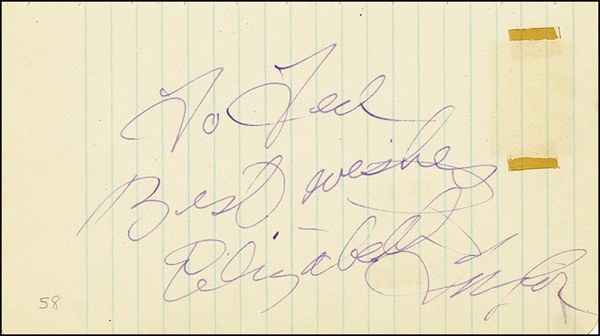 To Ted
Best wishes
Elizabeth Taylor
58